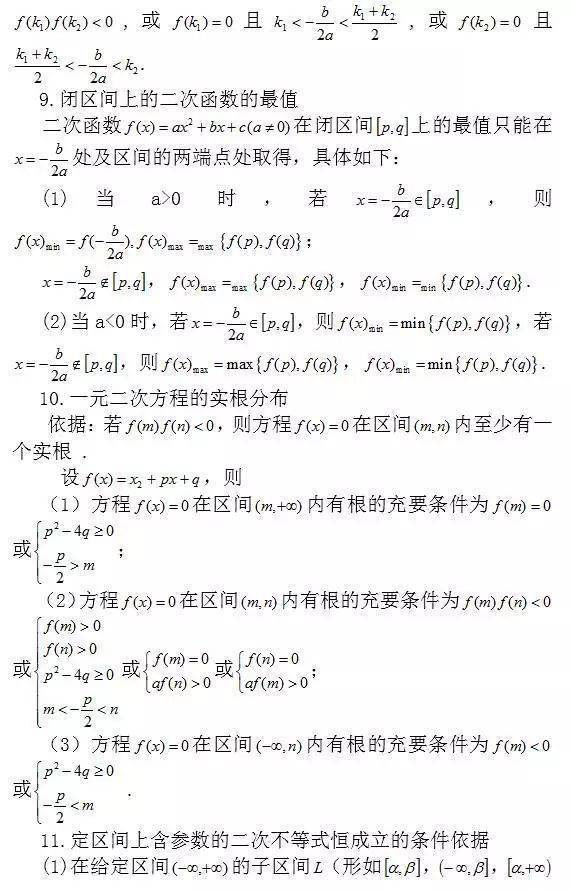 f(k₁)f(k₂)<0 ，或 f(k₁)=0 且 k₁<-b/2a<(k₁+k₂)/2 ，或 f(k₂)=0 且
(k₁+k₂)/2<-b/2a<k₂.
9.闭区间上的二次函数的最值
二次函数f(x)=ax²+bx+c(a≠0)在闭区间[p,q]上的最值只能在
x=-b/2a处及区间的两端点处取得，具体如下：
(1) 当 a>0 时 ， 若 x=-b/2a∈[p,q] ， 则
f(x)min=f(-b/2a),f(x)max=max{f(p),f(q)}；
x=-b/2a∉[p,q]，f(x)max=max{f(p),f(q)}，f(x)min=min{f(p),f(q)}.
(2)当a<0时，若x=-b/2a∈[p,q]，则f(x)min=min{f(p),f(q)}，若
x=-b/2a∉[p,q]，则f(x)max=max{f(p),f(q)}，f(x)min=min{f(p),f(q)}.
10.一元二次方程的实根分布
依据：若f(m)f(n)<0，则方程f(x)=0在区间(m,n)内至少有一
个实根 .
设f(x)=x₂+px+q，则
（1）方程f(x)=0在区间(m,+∞)内有根的充要条件为f(m)=0
或{p²-4q≥0
-p/2>m ；
（2）方程f(x)=0在区间(m,n)内有根的充要条件为f(m)f(n)<0
或{f(m)>0
f(n)>0
p²-4q≥0
m<-p/2<n 或{f(m)=0
af(n)>0 或{f(n)=0
af(m)>0；
（3）方程f(x)=0在区间(-∞,n)内有根的充要条件为f(m)<0
或{p²-4q≥0
-p/2<m .
11.定区间上含参数的二次不等式恒成立的条件依据
(1)在给定区间(-∞,+∞)的子区间L（形如[α,β]，(-∞,β]，[α,+∞)